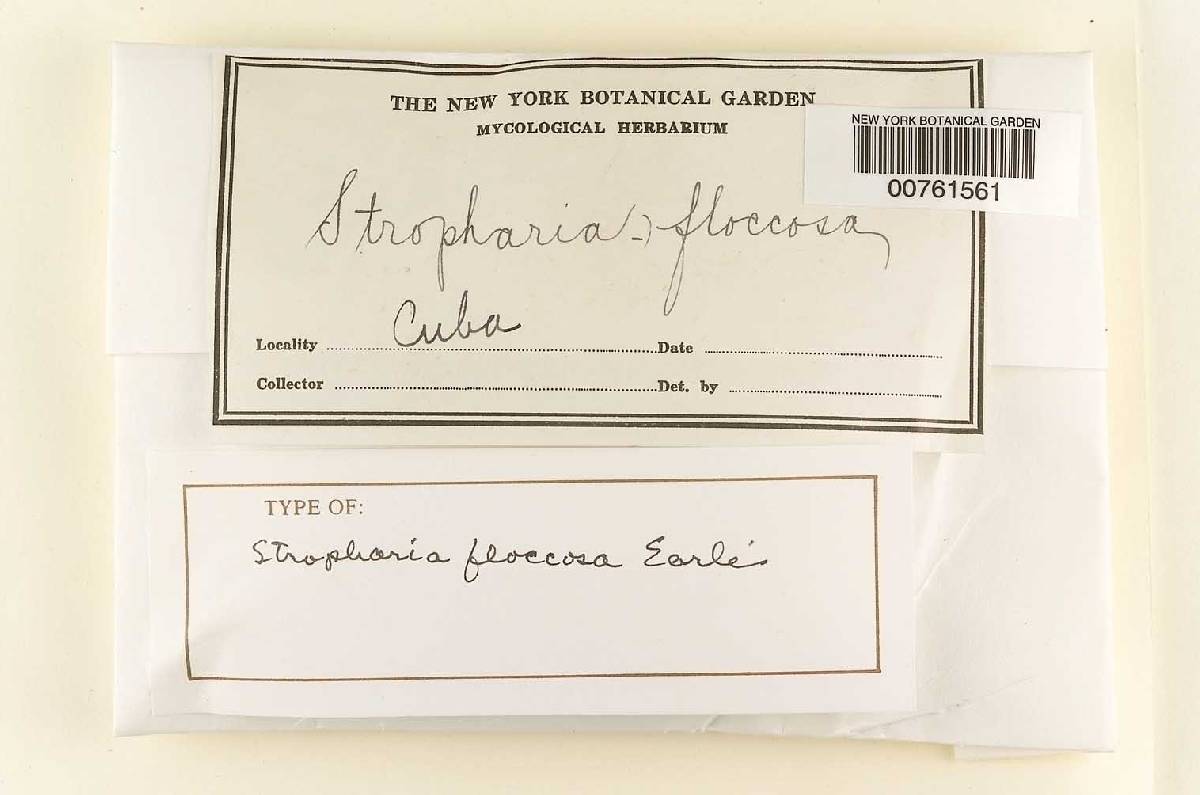 THE NEW YORK BOTANICAL GARDEN
MYCOLOGICAL HERBARIUM
NEW YORK BOTANICAL GARDEN
00761561
Stropharia floccosa
Locality Cuba Date
Collector Det. by
TYPE OF:
Stropharia floccosa Earle